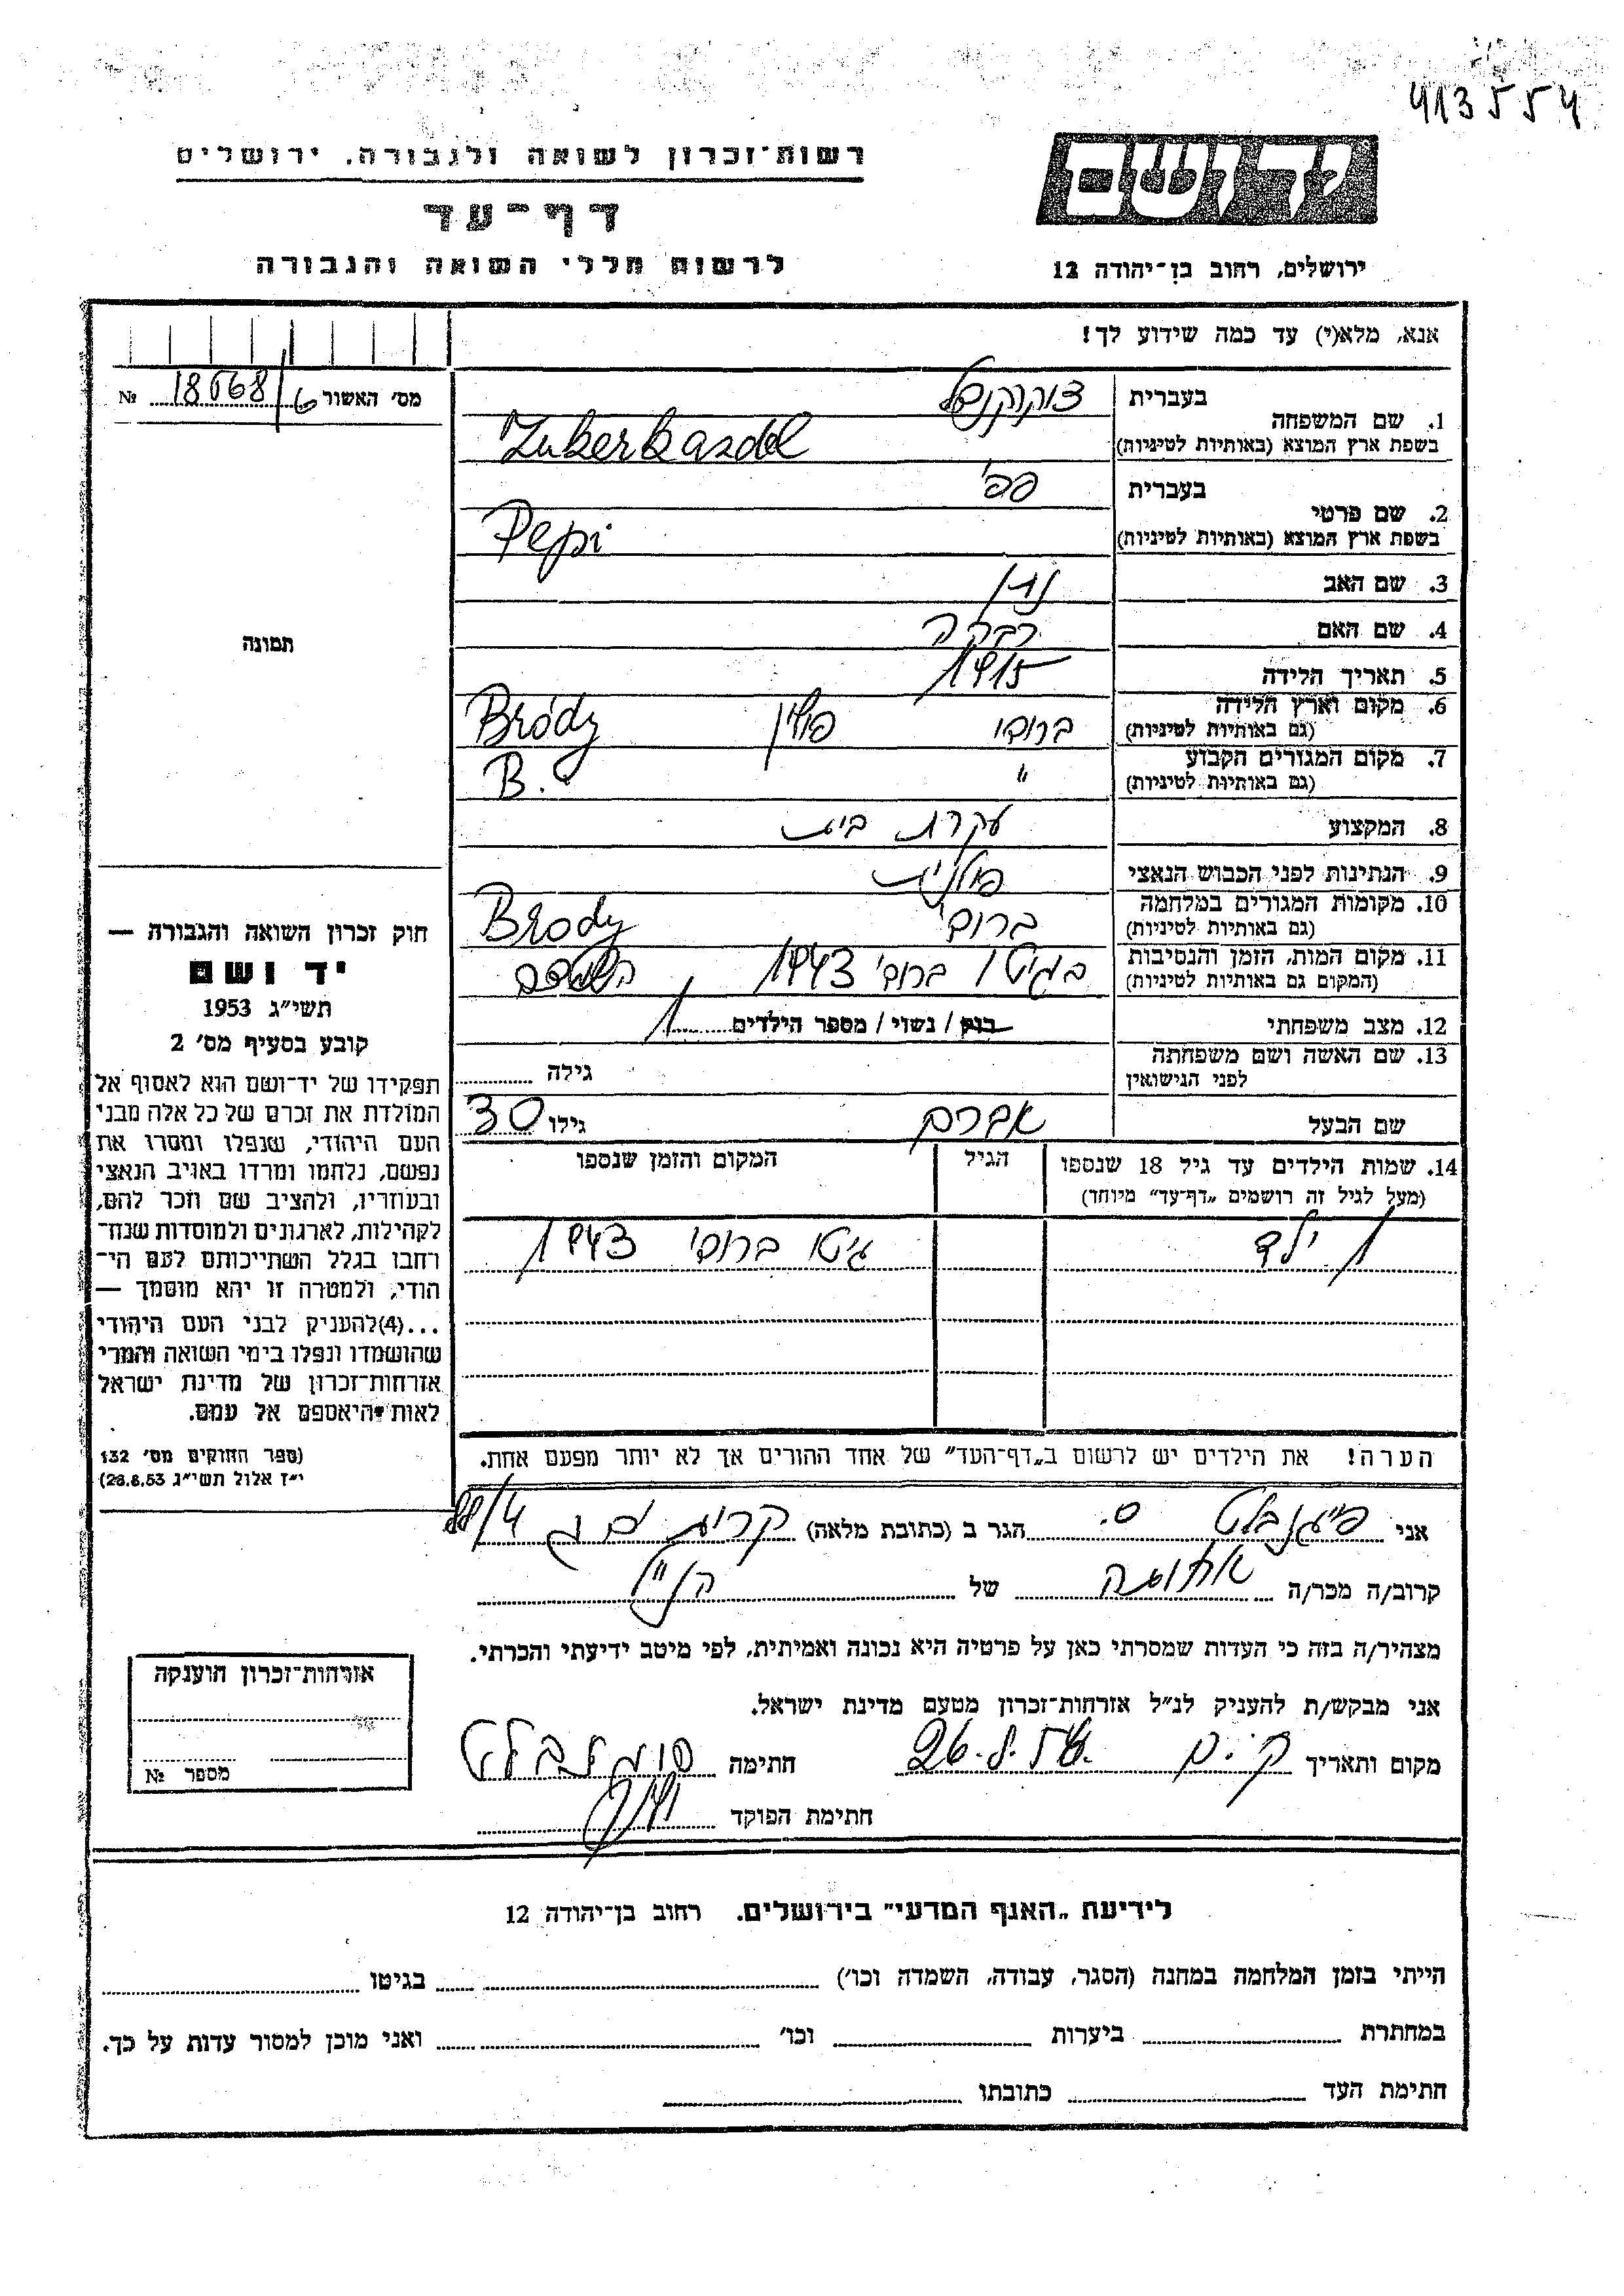 413554
רשות־זכרון לשואה ולגבורה, ירושלים
יד ושם
דף־עד
לרשום חללי השואה והגבורה
ירושלים, רחוב בן־יהודה 12
אנא, מלא(י) עד כמה שידוע לך!
מס׳ האשור № 18668
1. שם המשפחה
בעברית
בשפת ארץ המוצא (באותיות לטיניות) Zukerkandel
2. שם פרטי
בעברית פפי
בשפת ארץ המוצא (באותיות לטיניות) Pepi
3. שם האב נתן
4. שם האם רבקה
5. תאריך הלידה 1915
6. מקום וארץ הלידה
(גם באותיות לטיניות) ברודי פולין Bródy
7. מקום המגורים הקבוע
(גם באותיות לטיניות) " B.
8. המקצוע עקרת בית
9. הנתינות לפני הכבוש הנאצי פולנית
10. מקומות המגורים במלחמה
(גם באותיות לטיניות) ברודי Brody
11. מקום המות, הזמן והנסיבות
(המקום גם באותיות לטיניות) בגיטו ברודי 1943
12. מצב משפחתי רווק / נשוי / מספר הילדים 1
13. שם האשה ושם משפחתה
לפני הנישואין גילה
שם הבעל אברהם גילו 30
14. שמות הילדים עד גיל 18 שנספו הגיל המקום והזמן שנספו
(מעל לגיל זה רושמים „דף־עד״ מיוחד)
1 ילד גיטו ברודי 1943
הערה! את הילדים יש לרשום ב„דף־העד״ של אחד ההורים אך לא יותר מפעם אחת.
תמונה
חוק זכרון השואה והגבורה —
יד ושם
תשי״ג 1953
קובע בסעיף מס׳ 2
תפקידו של יד־ושם הוא לאסוף אל
המולדת את זכרם של כל אלה מבני
העם היהודי, שנפלו ומסרו את
נפשם, נלחמו ומרדו באויב הנאצי
ובעוזריו, ולהציב שם וזכר להם,
לקהילות, לארגונים ולמוסדות שנח־
רחבו בגלל השתייכותם לעם הי־
הודי, ולמטרה זו יהא מוסמך —
...(4)להעניק לבני העם היהודי
שהושמדו ונפלו בימי השואה והמרי
אזרחות־זכרון של מדינת ישראל
לאות היאספם אל עמם.
(ספר החוקים מס׳ 132
י״ז אלול תשי״ג 28.8.53)
אני פייגנבלט ס. הגר ב (כתובת מלאה) קרית ים ג 88/4
קרוב/ה מכר/ה אחותה של הנ"ל
מצהיר/ה בזה כי העדות שמסרתי כאן על פרטיה היא נכונה ואמיתית, לפי מיטב ידיעתי והכרתי.
אני מבקש/ת להעניק לנ״ל אזרחות־זכרון מטעם מדינת ישראל.
מקום ותאריך ק. ים 26.8.57 חתימה
חתימת הפוקד
אזרחות־זכרון הוענקה
מספר №
לידיעת „האגף המדעי״ בירושלים. רחוב בן־יהודה 12
הייתי בזמן המלחמה במחנה (הסגר, עבודה, השמדה וכו׳) בגיטו
במחתרת ביערות וכו׳ ואני מוכן למסור עדות על כך.
חתימת העד כתובתו